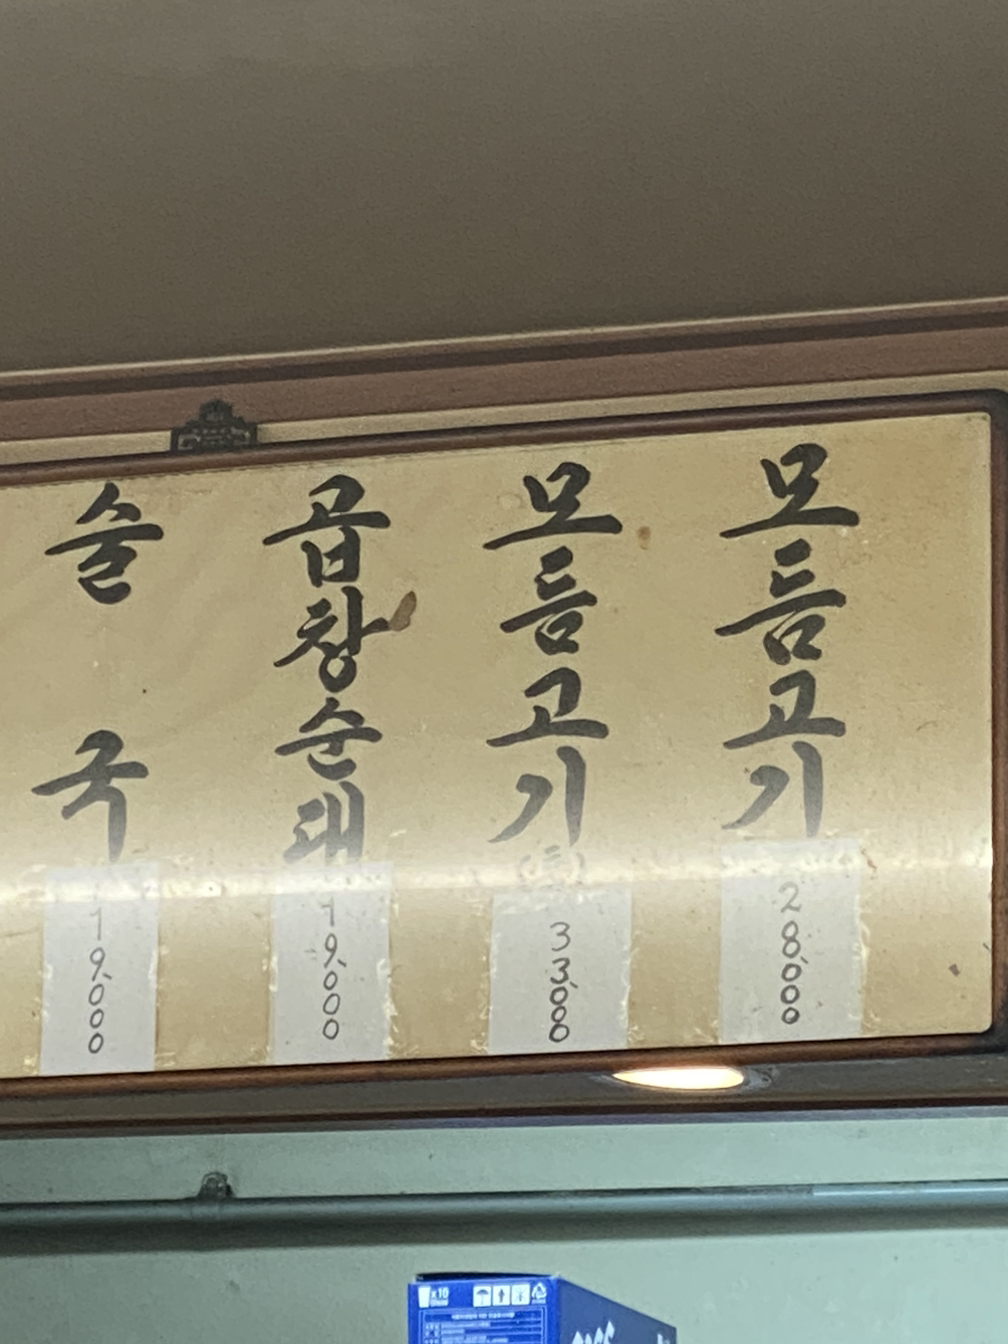 모듬고기
28,000
모듬고기
33,000
곱창순대
19,000
술국
19,000
x10